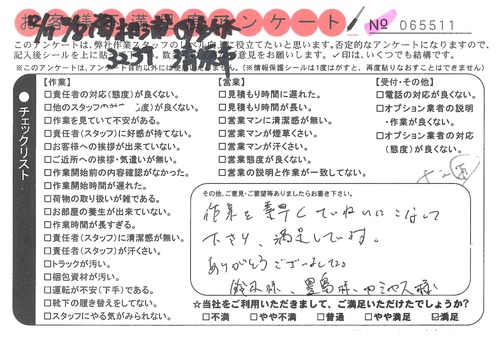 お客様満足度アンケート
№ 065511
このアンケートは、弊社作業スタッフのレベル向上に役立てたいと思います。否定的なアンケートになりますので、
記入後シールを上に貼
意見をお願いします。✓印は、いくつでも結構です。
※このアンケートは、アンケート目的以外には
(※情報保護シールは1度はがすと、再度貼りなおすことはできません)
チェックリスト
【作業】
□責任者の対応(態度)が良くない。
□他のスタッフの 度)が良くない。
□作業を見ていて不安がある。
□責任者(スタッフ)に好感が持てない。
□お客様への挨拶が出来ていない。
□ご近所への挨拶・気遣いが無い。
□作業開始前の内容確認がなかった。
□作業開始時間が遅れた。
□荷物の取り扱いが雑である。
□お部屋の養生が出来ていない。
□作業時間が長すぎる。
□責任者(スタッフ)に清潔感が無い。
□責任者(スタッフ)が汗くさい。
□トラックが汚い。
□梱包資材が汚い。
□運転が不安(下手)である。
□靴下の履き替えをしてない。
□スタッフにやる気がみられない。
【営業】
□見積もり時間に遅れた。
□見積もり時間が長い。
□営業マンに清潔感が無い。
□営業マンが煙草くさい。
□営業マンが汗くさい。
□営業態度が良くない。
□営業の説明と作業が一致してない。
【受付・その他】
□電話の対応が良くない。
□オプション業者の説明
・作業が良くない。
□オプション業者の対応
(態度)が良くない。
その他、ご意見・ご要望等ありましたらお書き下さい。
作業を素早くていねいにこなして
下さり、満足しています。
ありがとうございました。
鈴木様、豊島様、
☆当社をご利用いただきまして、ご満足いただけたでしょうか?
□不満 □やや不満 □普通 □やや満足 ☑満足